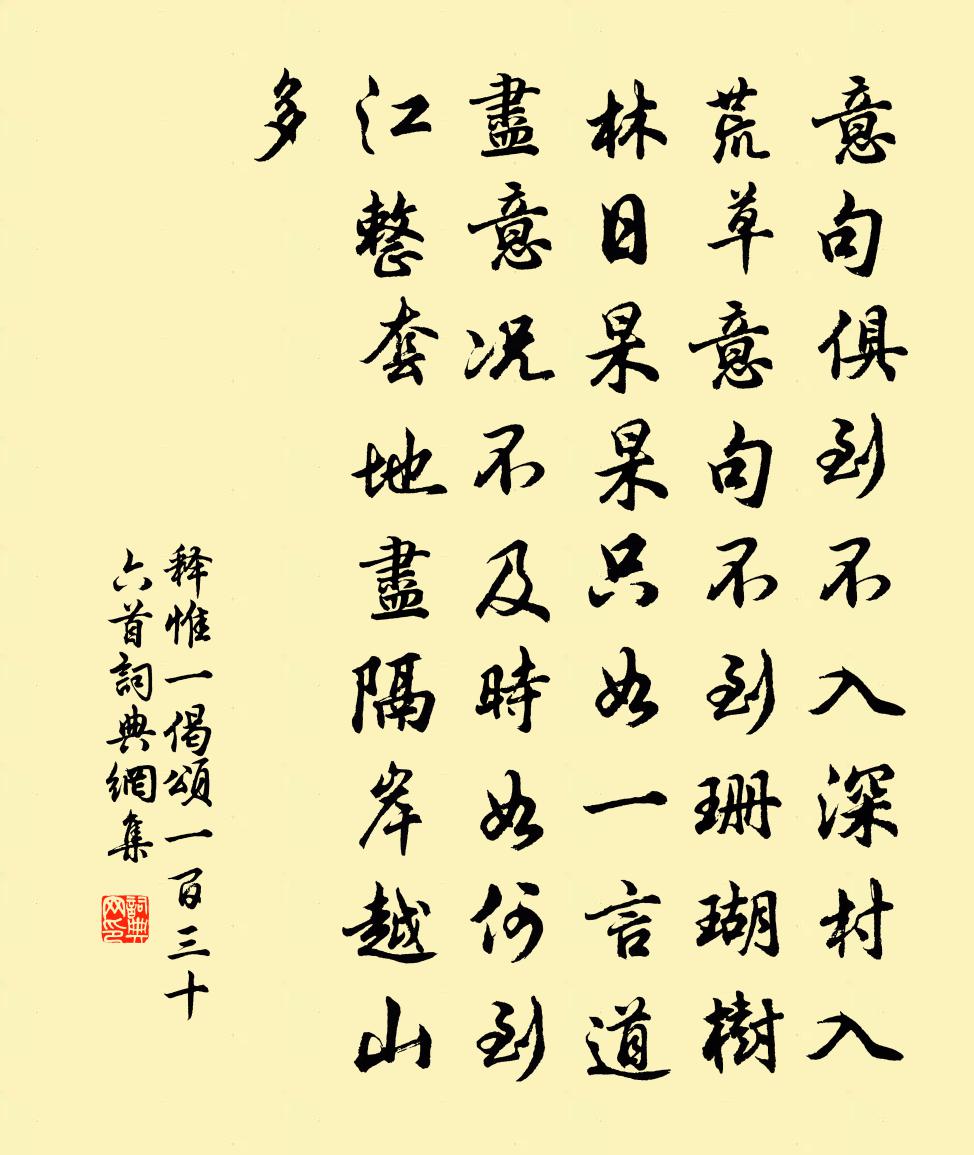 意句俱到不入深村入
荒草意句不到珊瑚樹
林日杲杲只如一言道
盡意況不及時如何到
江整套地盡隔岸越山
多
释惟一偈頌一百三十
六首詞典網集
詞典
网印